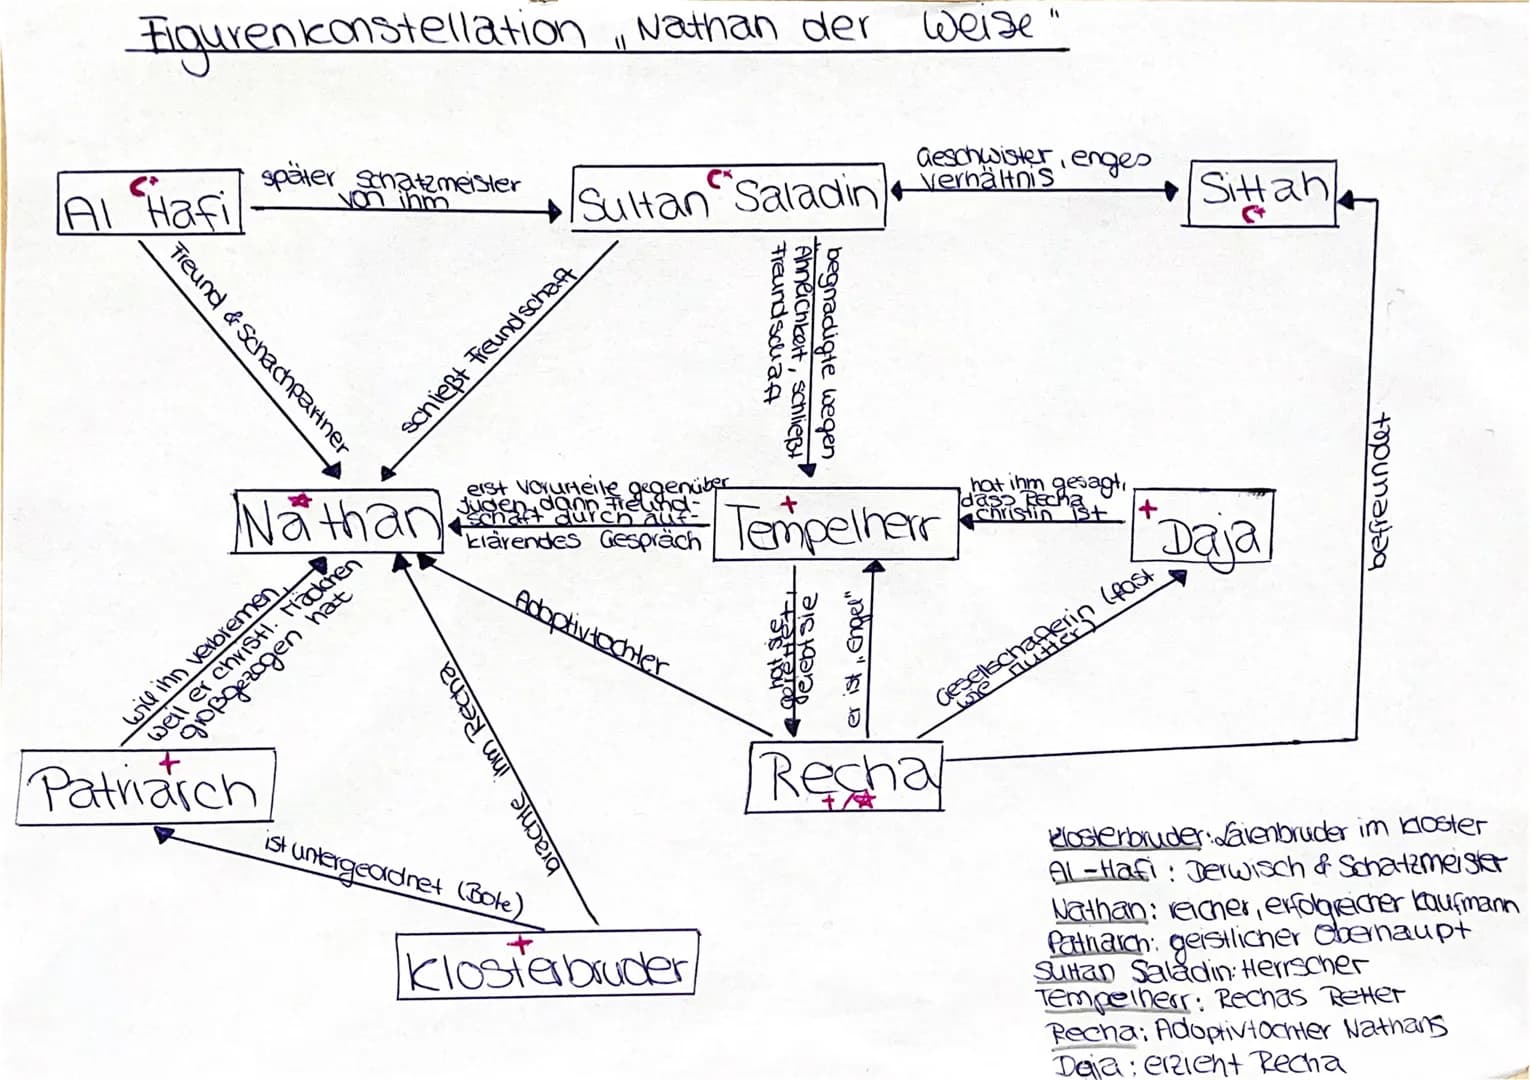 Figurenkonstellation „Nathan der Weise"
Al Hafi
später Schatzmeister
von ihm
Sultan Saladin
Geschwister, enges
Verhältnis
Sittah
Freund & Schachpartner
schießt Freundschaft
begnadigte wegen
Ähnlichkeit, schließt
Freundschaft
befreundet
Nathan
erst Vorurteile gegenüber
Juden, dann Freund-
schaft durch auf-
klärendes Gespräch
Tempelherr
hat ihm gesagt,
dass Recha
Christin ist
Daja
will ihn verbrennen,
weil er christl. Mädchen
großgezogen hat
Adoptivtochter
brachte ihm Recha
hat sie
gerettet
er ist „Engel"
Gesellschafterin (fast
wie Mutter)
Patriarch
Recha
+/
ist untergeordnet (Bote)
Klosterbruder
Klosterbruder: Laienbruder im Kloster
Al-Hafi: Derwisch & Schatzmeister
Nathan: reicher, erfolgreicher Kaufmann
Patriarch: geistlicher Oberhaupt
Sultan Saladin: Herrscher
Tempelherr: Rechas Retter
Recha: Adoptivtochter Nathans
Daja: erzieht Recha